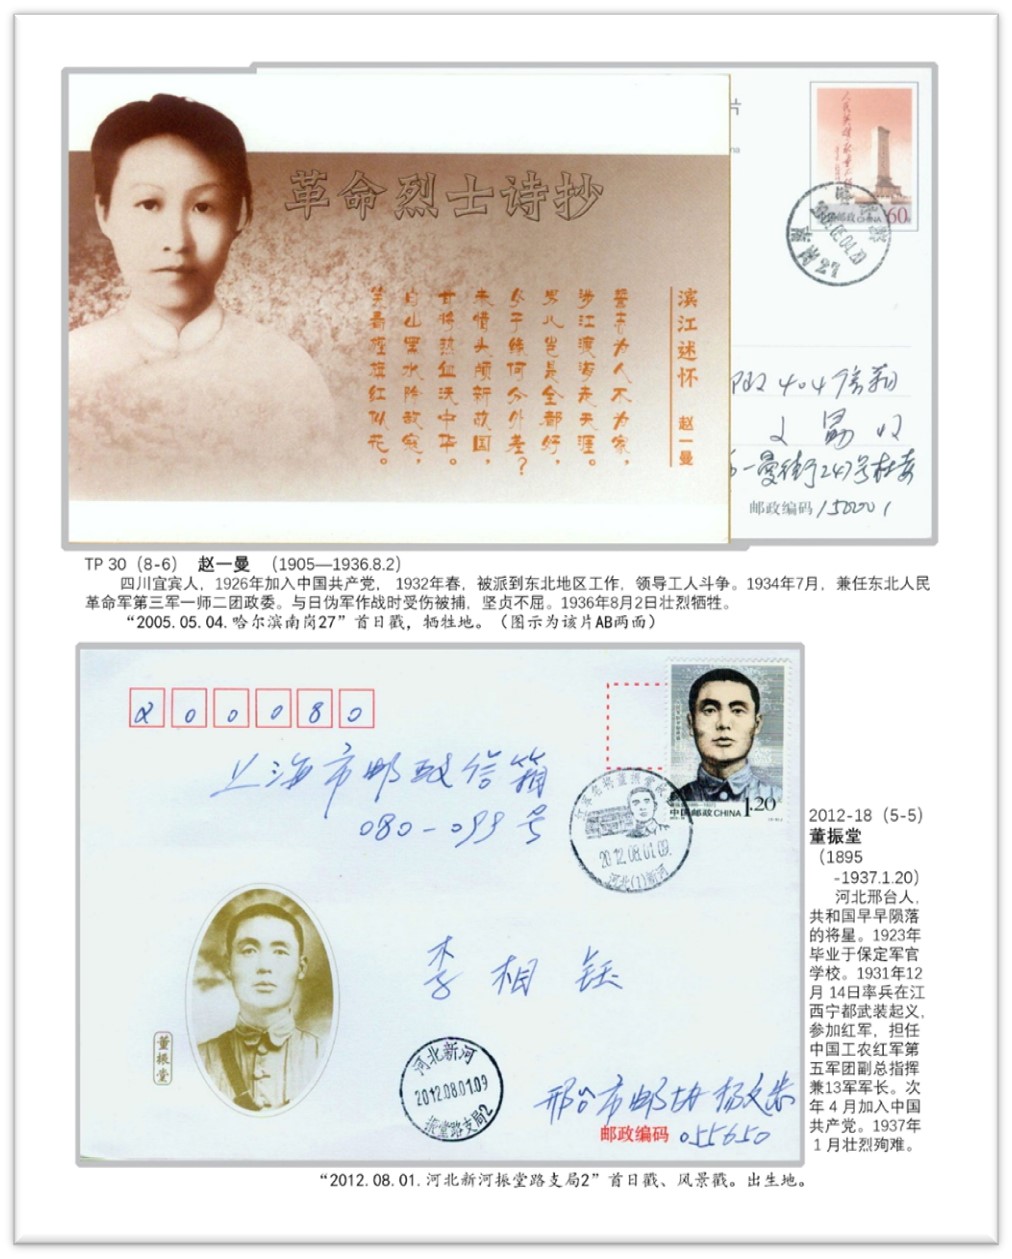 革命烈士诗抄
滨江述怀 赵一曼
誓志为人不为家，
涉江渡海走天涯。
男儿岂是全都好，
女子缘何分外差？
未惜头颅新故国，
甘将热血沃中华。
白山黑水除敌寇，
笑看旌旗红似花。
片
60
一曼街247号
邮政编码 150001
TP 30（8-6） 赵一曼 （1905—1936.8.2）
四川宜宾人，1926年加入中国共产党， 1932年春，被派到东北地区工作，领导工人斗争。1934年7月，兼任东北人民
革命军第三军一师二团政委。与日伪军作战时受伤被捕，坚贞不屈。1936年8月2日壮烈牺牲。
“2005.05.04.哈尔滨南岗27”首日戳，牺牲地。（图示为该片AB两面）
200080
上海市邮政信箱
080-099号
中国邮政CHINA 1.20
2012.08.01.09.
河北(1)新河
董振堂
李相钰
河北新河
2012.08.01.09
振堂路支局2
邢台市邮协
邮政编码 055650
2012-18（5-5）
董振堂
（1895
-1937.1.20）
河北邢台人，
共和国早早陨落
的将星。1923年
毕业于保定军官
学校。1931年12
月 14日率兵在江
西宁都武装起义，
参加红军，担任
中国工农红军第
五军团副总指挥
兼13军军长。次
年 4 月加入中国
共产党。1937年
1 月壮烈殉难。
“2012.08.01.河北新河振堂路支局2”首日戳、风景戳。出生地。